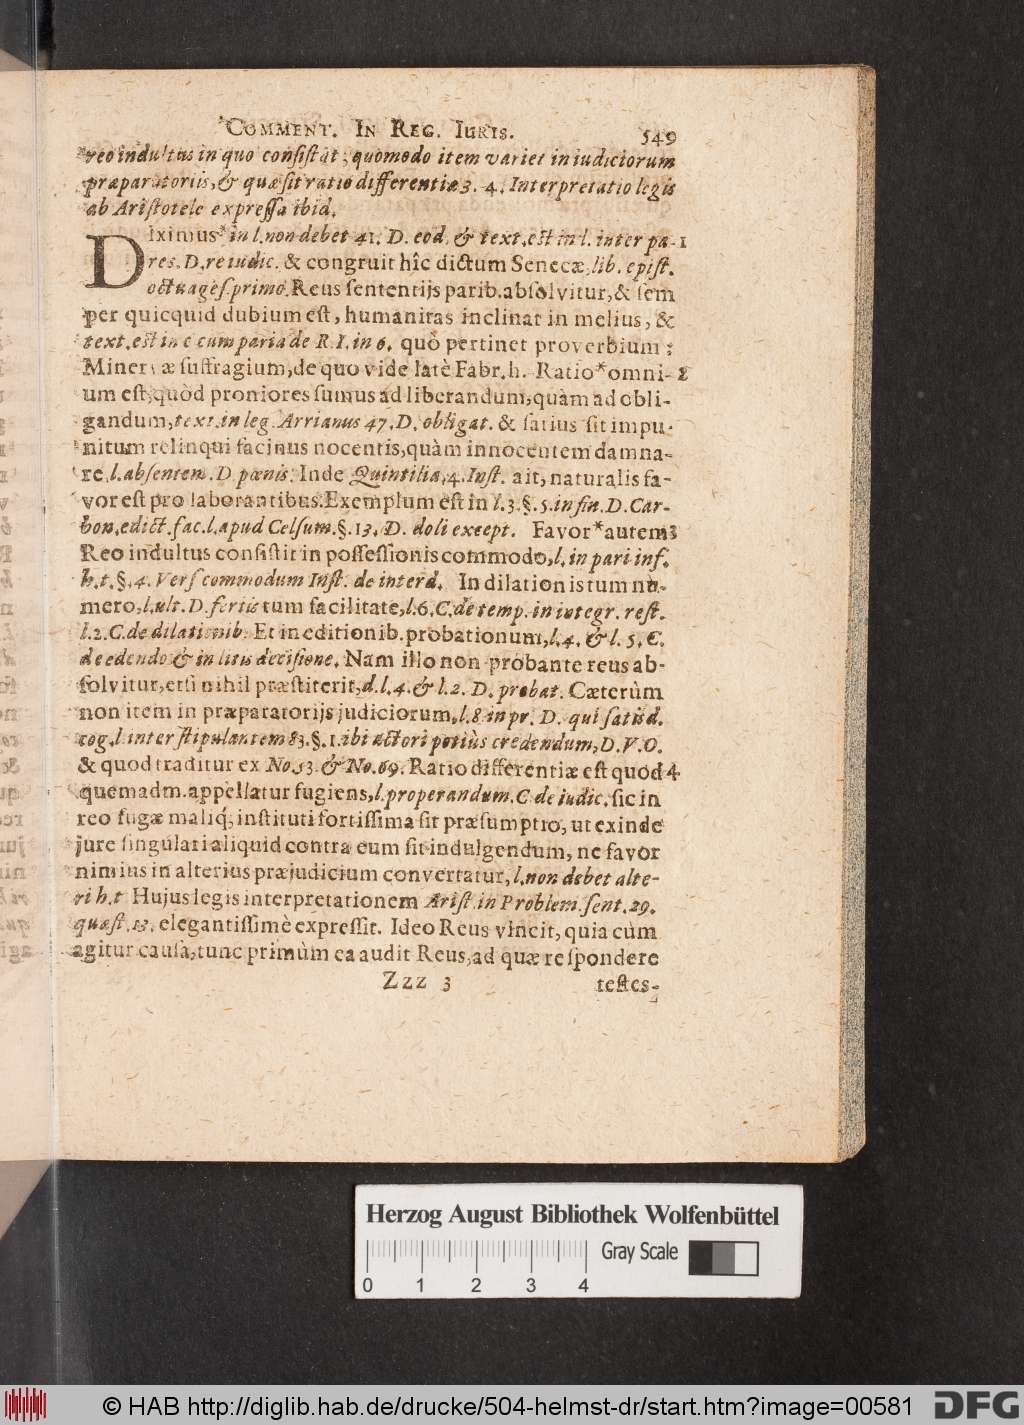 COMMENT. IN REG. IURIS. 549
reo indultus in quo consistat, quomodo item variet in iudiciorum
præparatoriis, & quæ sit ratio differentiæ 3. 4. Interpretatio legis
ab Aristotele expressa ibid.
DIximus* in l. non debet 41. D. eod. & text. est in l. inter pa- 1
res. D. re iudic. & congruit hîc dictum Senecæ, lib. epist.
octuages. primo. Reus sententijs parib. absolvitur, & sem
per quicquid dubium est, humanitas inclinat in melius, &
text. est in c cum paria de R. I. in 6. quò pertinet proverbium:
Minervæ suffragium, de quo vide latè Fabr. h. Ratio* omni- 2
um est, quòd proniores sumus ad liberandum, quàm ad obli-
gandum, text. in leg. Arrianus 47. D. obligat. & satius sit impu-
nitum relinqui facinus nocentis, quàm innocentem damna-
re l. absentem. D. pænis. Inde Quintilia, 4. Inst. ait, naturalis fa-
vor est pro laborantibus. Exemplum est in l. 3. §. 5. in fin. D. Car-
bon. edict. fac. l. apud Celsum. §. 13. D. doli except. Favor* autem 3
Reo indultus consistit in possessionis commodo, l. in pari inf.
h. t. §. 4. Vers commodum Inst. de interd. In dilationis tum nu-
mero, l. ult. D. feriis tum facilitate, l. 6. C. de temp. in integr. rest.
l. 2. C. de dilationib. Et in editionib. probationum, l. 4. & l. 5. C.
de edendo & in litis decisione. Nam illo non probante reus ab-
solvitur, etsi nihil præstiterit, d. l. 4. & l. 2. D. probat. Cæterùm
non item in præparatorijs judiciorum, l. 8 in pr. D. qui satisd.
cog. l. inter stipulantem 83. §. 1. ibi actori potiùs credendum, D. V. O.
& quod traditur ex No. 53. & No. 69. Ratio differentiæ est quod 4
quemadm. appellatur fugiens, l. properandum. C de iudic. sic in
reo fugæ maliq́; instituti fortissima sit præsumptio, ut exinde
jure singulari aliquid contra eum sit indulgendum, ne favor
nimius in alterius præjudicium convertatur, l. non debet alte-
ri h. t Hujus legis interpretationem Arist. in Problem. sent. 29.
quæst. 13. elegantissimè expressit. Ideo Reus vincit, quia cùm
agitur causa, tunc primùm ea audit Reus, ad quæ respondere
Zzz 3 testes-
Herzog August Bibliothek Wolfenbüttel
Gray Scale
0 1 2 3 4
© HAB http://diglib.hab.de/drucke/504-helmst-dr/start.htm?image=00581 DFG